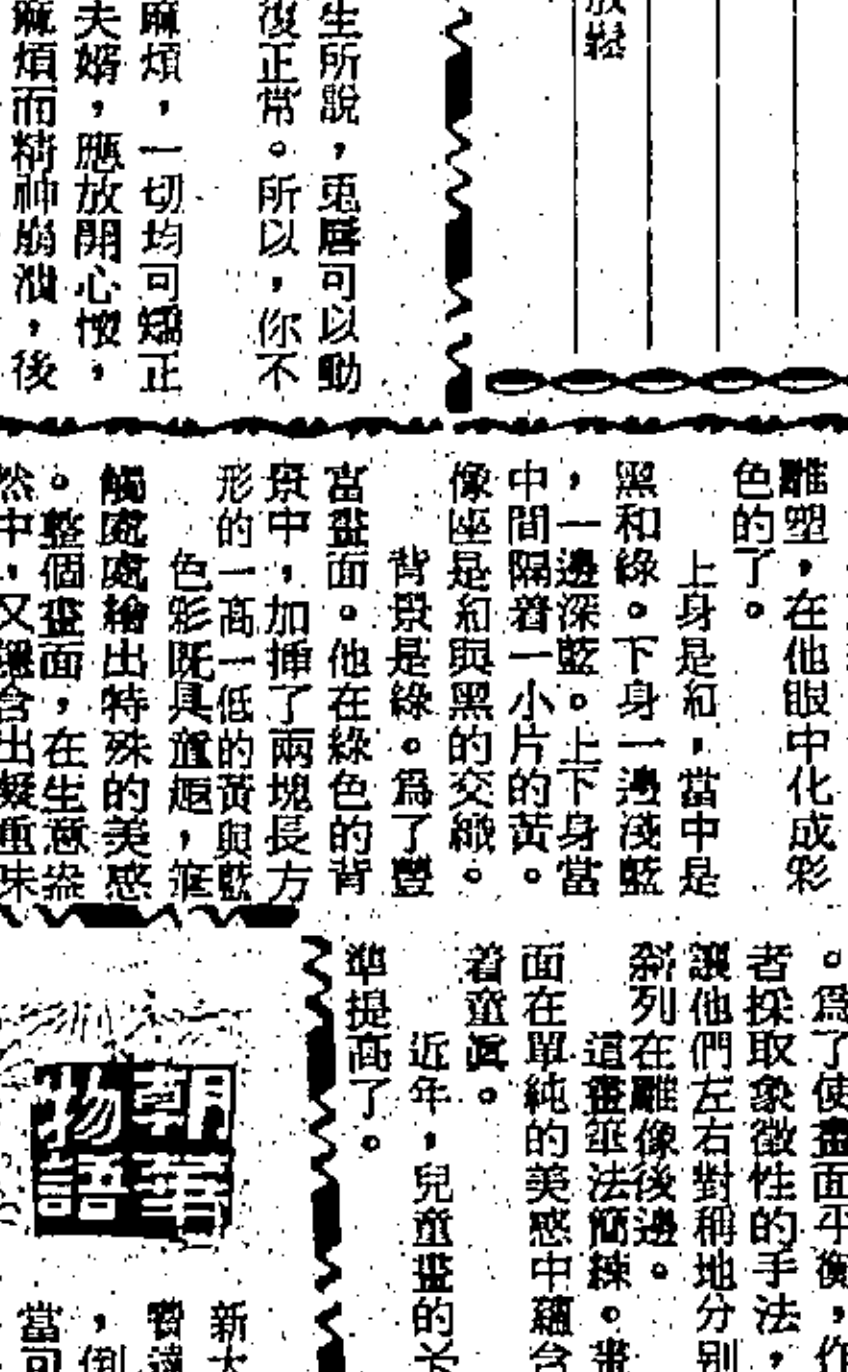 放鬆
生所說，兎唇可以動
復正常。所以，你不
麻煩，一切均可矯正
夫婿，應放開心懷，
麻煩而精神崩潰，後
雕塑，在他眼中化成彩
色的了。
上身是紅，當中是
黑和綠。下身一邊淺藍
，一邊深藍。上下身當
中間隔着一小片的黃。
像座是紅與黑的交織。
背景是綠。爲了豐
富畫面。他在綠色的背
景中，加揷了兩塊長方
形的一高一低的黃與藍
色彩旣具童趣，筆
觸處處繪出特殊的美感
。整個畫面，在生意盎
然中，又蘊含出凝重味
。爲了使畫面平衡，作
者採取象徵性的手法，
讓他們左右對稱地分别
斜列在雕像後邊。
這畫筆法簡練。畫
面在單純的美感中蘊含
着童眞。
近年，兒童畫的水
準提高了。
朝華
物語
新大
當可